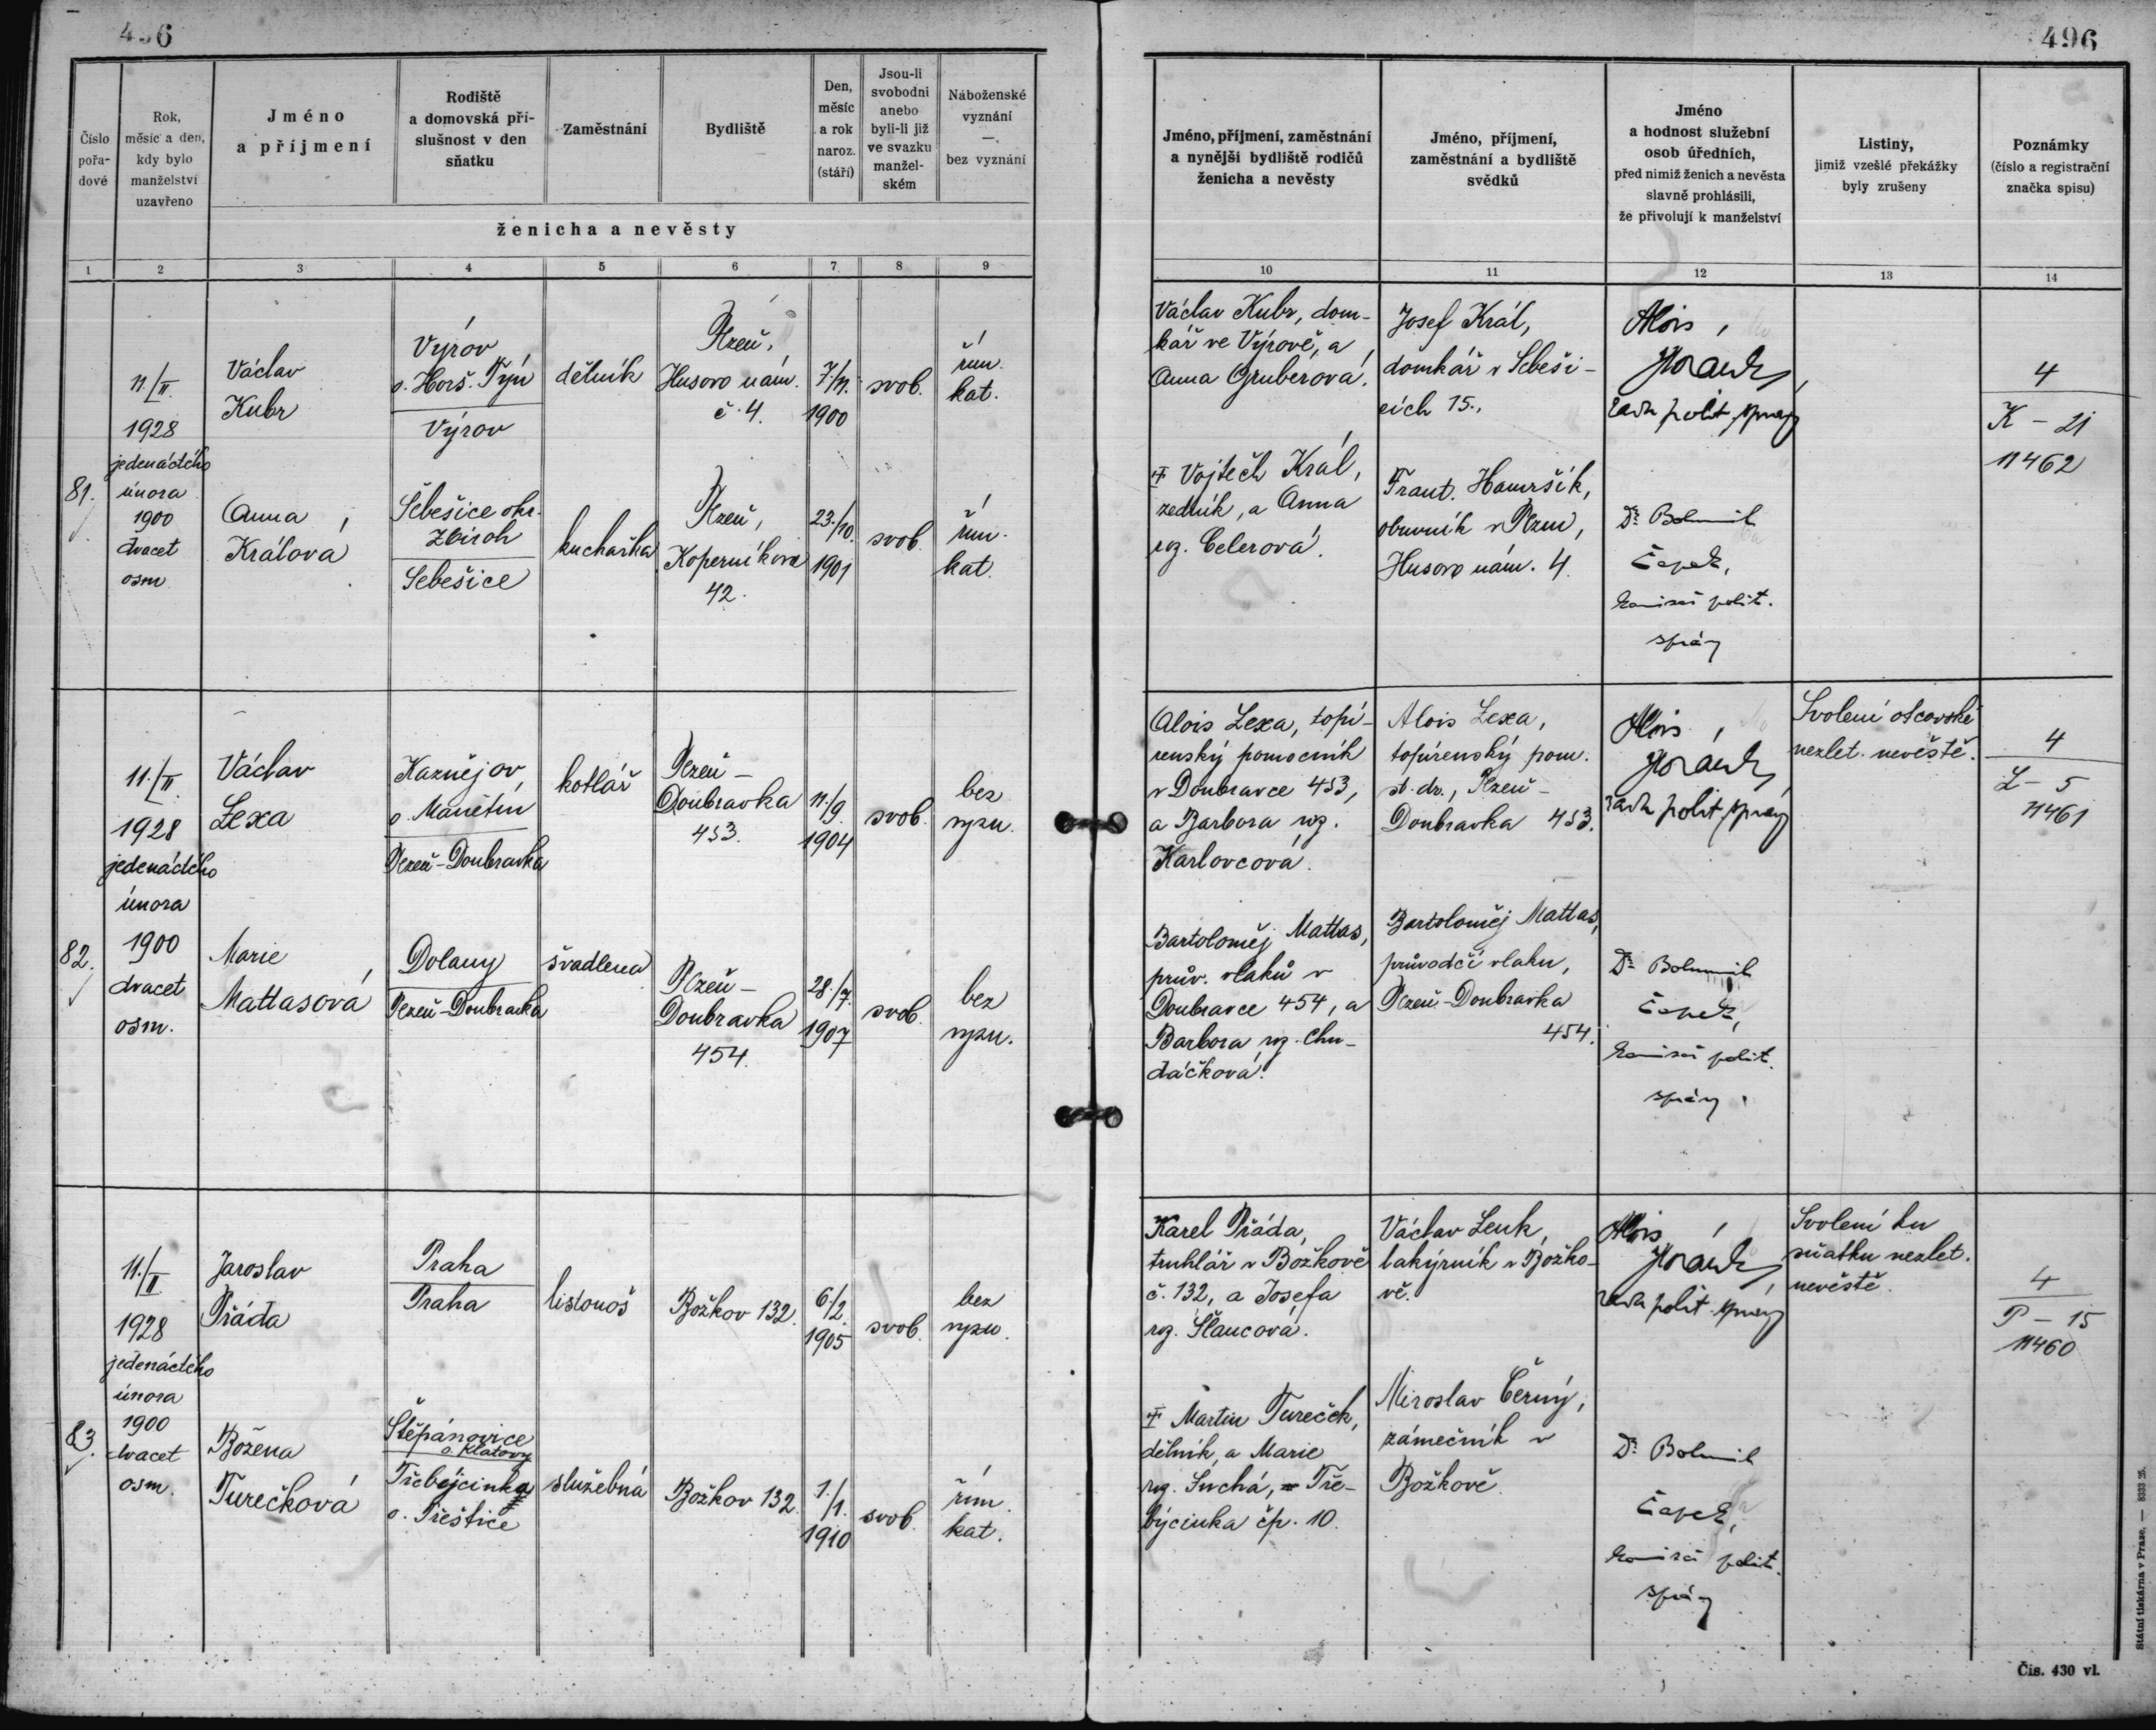 496
496
Číslo
pořa-
dové
Rok,
měsíc a den,
kdy bylo
manželství
uzavřeno
Jméno
a příjmení
Rodiště
a domovská pří-
slušnost v den
sňatku
Zaměstnání
Bydliště
Den,
měsíc
a rok
naroz.
(stáří)
Jsou-li
svobodni
anebo
byli-li již
ve svazku
manžel-
ském
Náboženské
vyznání
—
bez vyznání
ženicha a nevěsty
Jméno, příjmení, zaměstnání
a nynější bydliště rodičů
ženicha a nevěsty
Jméno, příjmení,
zaměstnání a bydliště
svědků
Jméno
a hodnost služební
osob úředních,
před nimiž ženich a nevěsta
slavně prohlásili,
že přivolují k manželství
Listiny,
jimiž vzešlé překážky
byly zrušeny
Poznámky
(číslo a registrační
značka spisu)
1 2 3 4 5 6 7 8 9 10 11 12 13 14
81.
11./II.
1928
jedenáctého
února
1900
dvacet
osm
Václav
Kubr
Výrov
o. Horš. Týn
Výrov
dělník
Plzeň,
Husovo nám.
č. 4.
7/11.
1900
svob.
řím.
kat.
Václav Kubr, dom-
kář ve Výrově, a
Anna Gruberová.
Josef Král,
domkář v Sebeši-
cích 15.,
Alois
rada polit. správy
4
K – 21
11462
Anna
Králová
Šebešice okr.
Zbiroh
Sebešice
kuchařka
Plzeň,
Koperníkova
42.
23./10.
1901
svob.
řím.
kat.
† Vojtěch Král,
zedník, a Anna
roz. Celerová.
Frant. Hamršík,
obuvník v Plzni,
Husovo nám. 4.
Dr. Bohumil
Čapek,
komisař polit.
správy
82.
11./II.
1928
jedenáctého
února
1900
dvacet
osm.
Václav
Lexa
Kaznějov,
o. Manětín
Plzeň-Doubravka
kotlář
Plzeň-
Doubravka
453.
11./9.
1904
svob.
bez
vyzn.
Alois Lexa, topí-
renský pomocník
v Doubravce 453,
a Barbora roz.
Karlovcová.
Alois Lexa,
topírenský pom.
st. dr., Plzeň-
Doubravka 453.
Alois
rada polit. správy
Svolení otcovské
nezlet. nevěstě.
4
L – 5
11461
Marie
Mattasová
Dolany
Plzeň-Doubravka
švadlena
Plzeň-
Doubravka
454.
28./7.
1907
svob.
bez
vyzn.
Bartoloměj Mattas,
prův. vlaků v
Doubravce 454, a
Barbora roz. Chu-
dáčková.
Bartoloměj Mattas,
průvodčí vlaku,
Plzeň-Doubravka
454.
Dr. Bohumil
Čapek,
komisař polit.
správy
83.
11./II
1928
jedenáctého
února
1900
dvacet
osm.
Jaroslav
Přáda
Praha
Praha
listonoš
Božkov 132.
6/2.
1905
svob.
bez
vyzn.
Karel Přáda,
truhlář v Božkově
č. 132, a Josefa
roz. Šlaucová.
Václav Lenk,
lakýrník v Božko-
vě.
Alois
rada polit. správy
Svolení ku
sňatku nezlet.
nevěstě.
4
P – 15
11460
Božena
Turečková
Štěpánovice
o. Klatovy
Třebýcinka
o. Přeštice
služebná
Božkov 132
1./1.
1910
svob.
řím.
kat.
† Martin Tureček,
dělník, a Marie
roz. Suchá, Tře-
býcinka čp. 10.
Miroslav Černý,
zámečník v
Božkově.
Dr. Bohumil
Čapek,
komisař polit.
správy
Čís. 430 vl.
Státní tiskárna v Praze. — 8333 26.